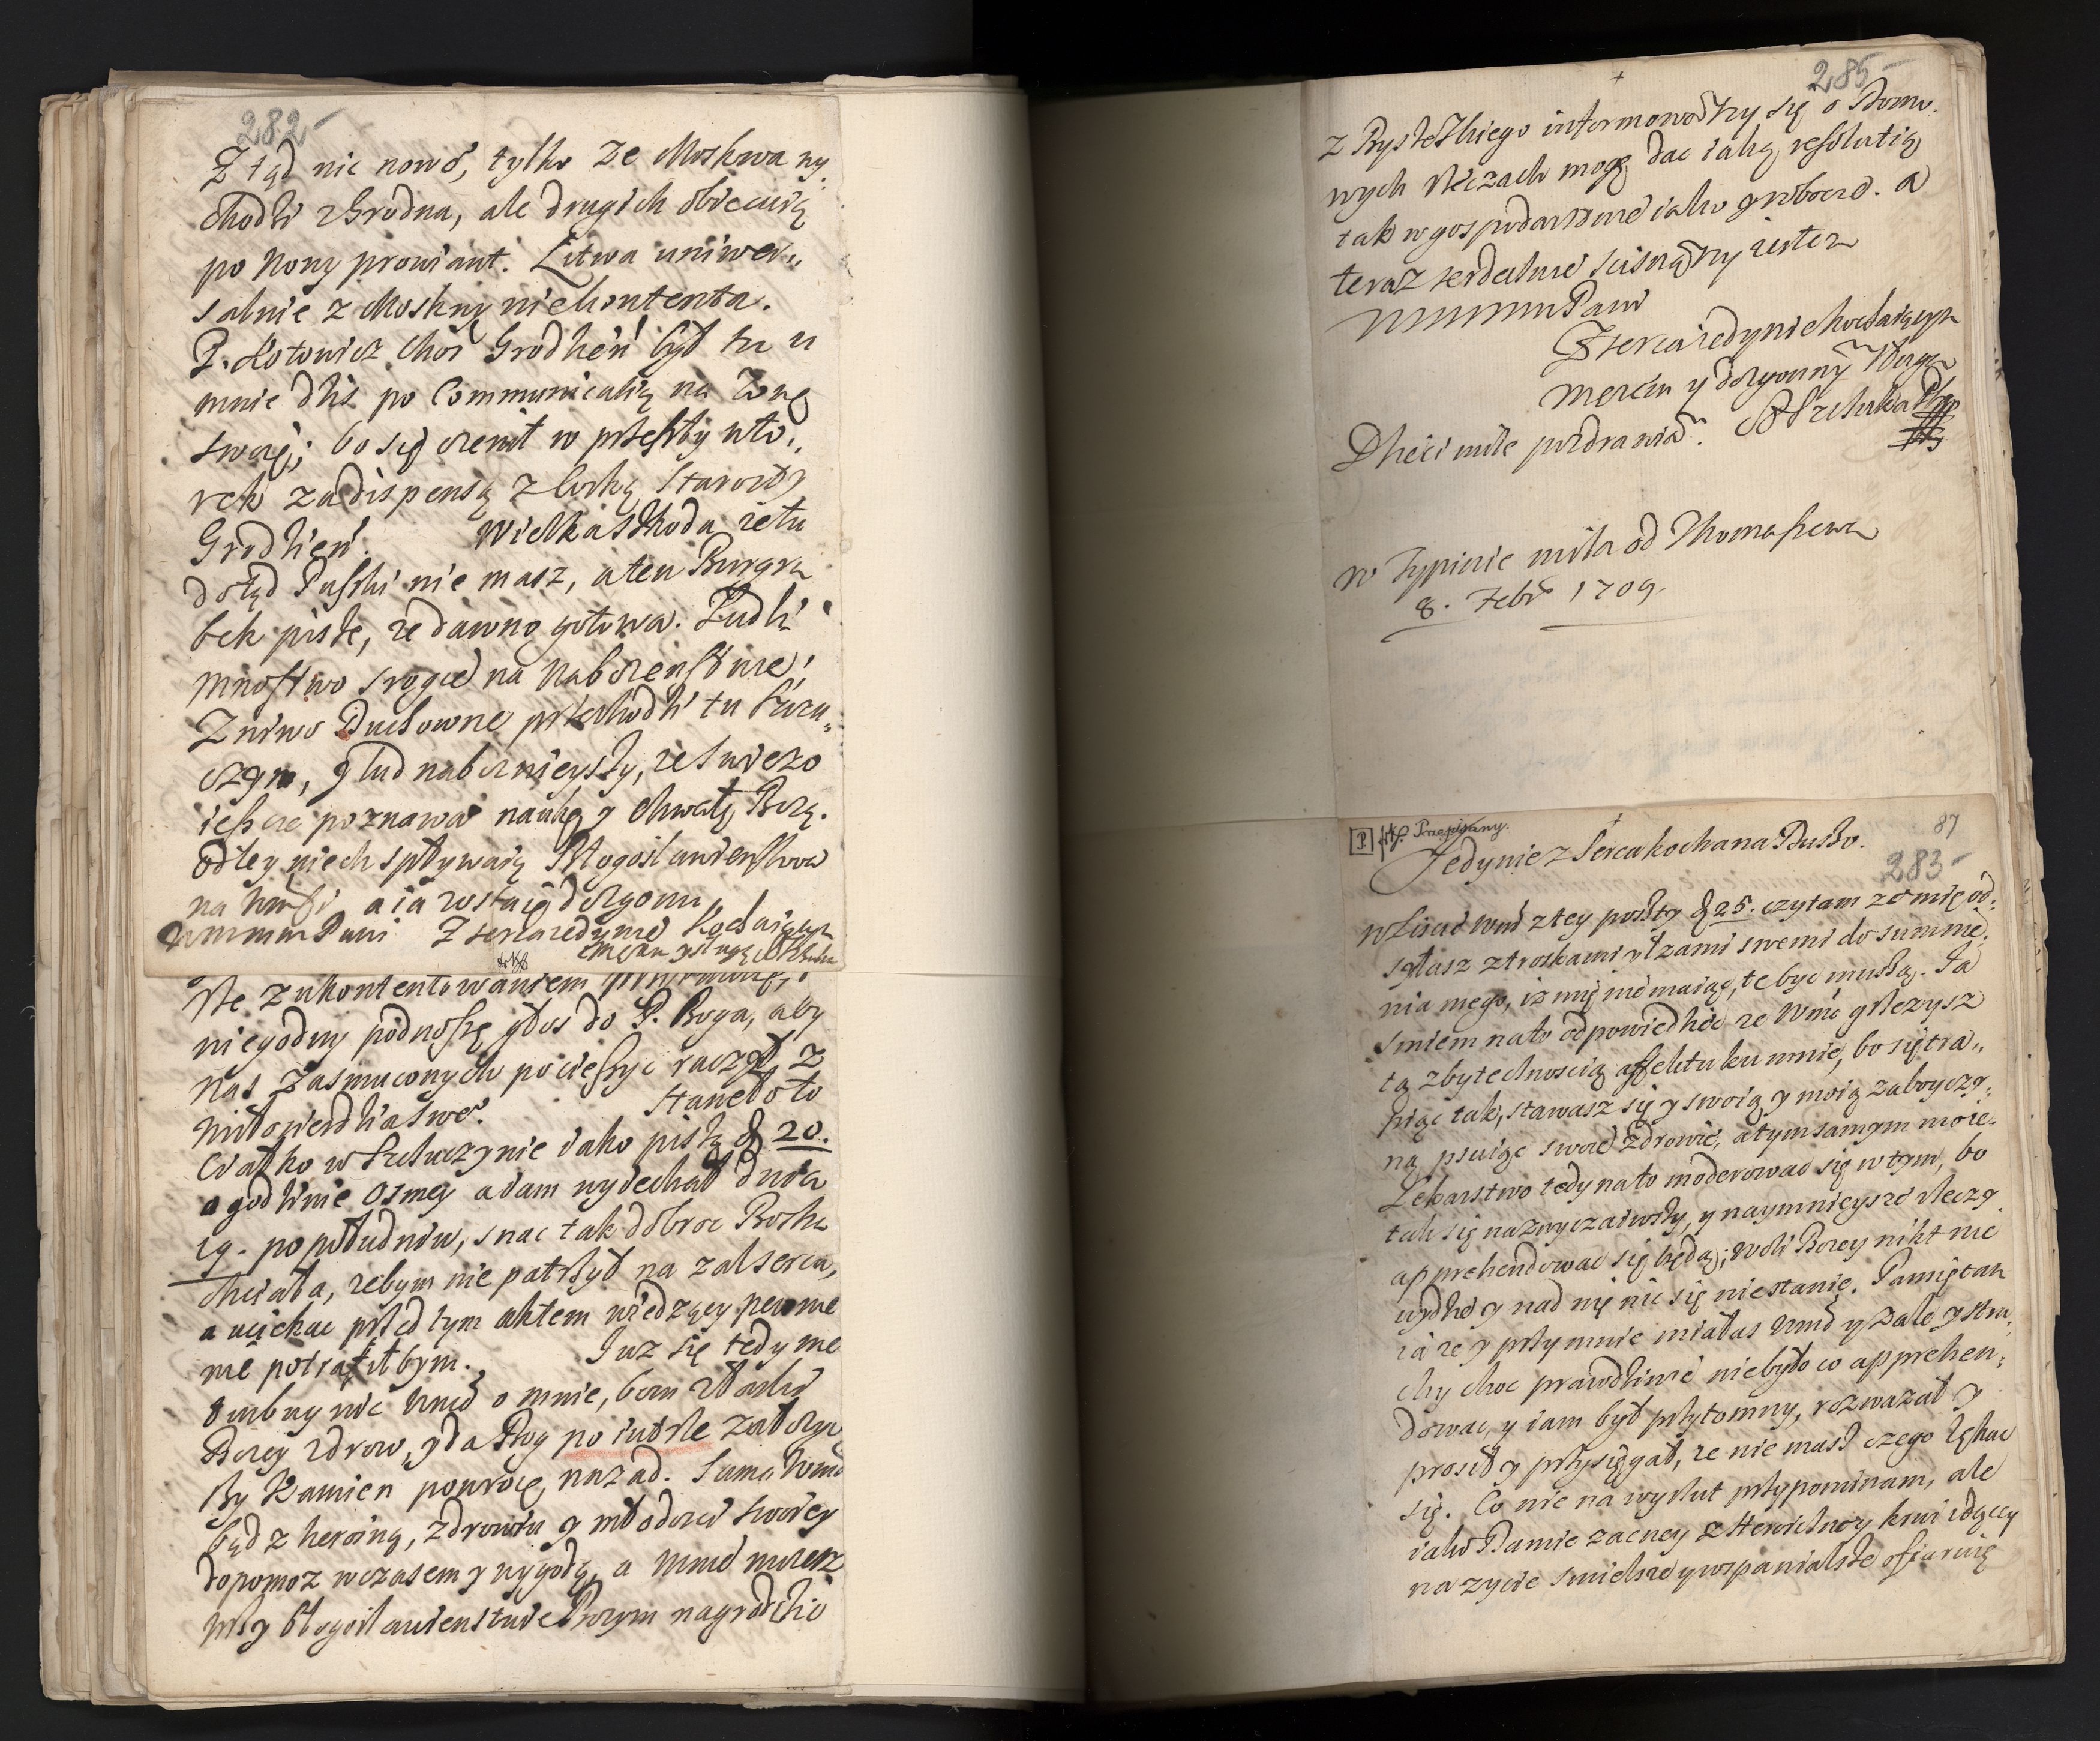 282
Z tąd nic nowo, tylko ze Moskwa wy,
chodzi z Grodna, ale drugich obiecuią
po Nowy prowiant. Litwa uniwer,,
salnie z Moskwy niekontenta.
P. Kotowicz Chor Grodzień był tu u
mnie dzis po Communicatią na Zonę
swoię; bo się ozenił w przeszły wto,,
rek za dispensą z Corką Starosty
Grodzień. Wielka szkoda ze tu
dotąd Puszki nie masz, a ten Burgra
bek pisze, ze dawno gotowa. Ludzi
mnostwo srogie na Nabozenstwie,
Zniwo Duchowne przechodzi tu
y lud naboznieyszy, ze swiezo
ieszcze poznawa naukę y Chwałę Bozą.
Od tey niech spływaią Błogosławienstwa
na Wmsci a ia zostaię dozgonny
Pani Z serca iedynie Kochaiącym
Mężem y sługą
Ale z ukontentowaniem
niegodny podnoszę głos do P. Boga, aby
nas zasmuconych pocieszyc raczył z
miłosierdzia swe°. Stanęło to
Ciałko w Szczuczynie iako piszą d 20.
o godzinie osmey a iam wyiechał dnia
19. po południu, snac tak dobroc Boska
chciała, zebym nie patrzył na zal serca,
a uciekac przed tym aktem wiedzący pewnie
nie potrafiłbym. Iuz się tedy nie
turbuy nic Wmć o mnie, bom z łaski
Bozey zdrow, y da Bog po iutrze załozy
szy Kamien powrocę nazad. Sama Wmć
bądz heroiną, zdrowiu y młodosci swoiey
dopomoz wczasem y wygodą, a Wmć
błogosławienstwie Bozym nagrodzic
285
+
z Bystrzkiego informowawszy się o Domo,
wych Rzeczach mogę dac iaką resolutią
tak w gospodarstwie iako y robocie. A
teraz serdecznie scisnąwszy iestem
Pani
Z serca iedynie kochaiącym
Męzem y dozgonnym Sługą
Dzieci miłe pozdrawiam.
w Typinie mila od Thomaszewa
8. Febr 1709.
87
[P] Przepisany.
283
Jedynie z Serca kochana Duszo.
W Liscie Wmć z tey poszty d 25. czytam ze mię od,
sylasz z troskami y łzami swemi do sumnie,
nia mego, iz mię nie maiąc, te byc muszą. Ia
smiem na to odpowiedziec ze Wmć grzeszysz
tą zbytecznoscią affektu ku mnie, bo się tra,,
piąc tak, stawasz się y swoią y moią zaboyczy,
ną psuiąc swoie zdrowie, a tym samym moie.
Lekarstwo tedy na to moderowac się w tym, bo
tak się nazwyczaiwszy, y naymnieysze rzeczy
apprehendowac się będą; woli Bozey nikt nie
uydzie y nad nię nic się nie stanie. Pamiętam
ia ze y przy mnie miałas Wmć y zale y stra,
chy choc prawdziwie nie było co apprehen,
dowac, y iam był przytomny, rozwazał y
prosił y przysięgał, ze nie masz czego lękac
się. Co nie na wyrzut przypominam, ale
iako Damie zacney z Heroiczney krwi idącey
na zycie smielsze y wspanialsze ofiaruię